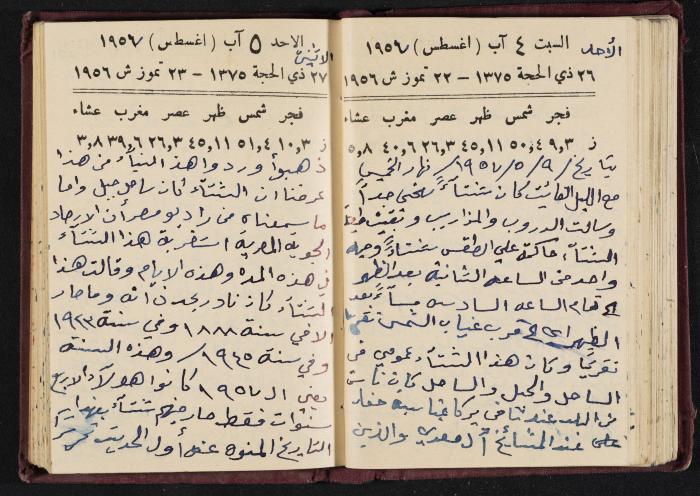 الأحد
السبت ٤ آب (اغسطس) ١٩٥٦
٢٦ ذي الحجة ١٣٧٥ – ٢٢ تموز ش ١٩٥٦
فجر شمس ظهر عصر مغرب عشاء
ز ٩,٣ ٥٠,٤ ٤٥,١١ ٢٦,٣ ٤٠,٦ ٥,٨
بتاريخ/ ٩/ ٥/ ١٩٥٧/ نهار الخميس
مع الليل كان شتاء سخي جداً
وسالت الدروب والمزاريب وبقيت
الشتاء حاكمة على الطقس شتاء
واحد من الساعه الثانية بعد الظهر
لتمام الساعه السادسه مساء بعد
الظهر قرب غياب الشمس
تقريباً وكان هذا الشتاء عمومي في
الساحل والجبل والساحل كان
من البلد عندنا في بركا
على عند المشائخ آل والذين
الاثنين
الاحد ٥ آب (اغسطس) ١٩٥٦
٢٧ ذي الحجة ١٣٧٥ – ٢٣ تموز ش ١٩٥٦
فجر شمس ظهر عصر مغرب عشاء
ز ١٠,٣ ٥١,٤ ٤٥,١١ ٢٦,٣ ٣٩,٦ ٣,٨
ذهبوا وردوا هذا النباء من هذا
عرفنا ان الشتاء كان ساحل جبل واما
ما سمعناه من راديو مصر أن الارصاد
الجوية المصرية استغربة هذا الشتاء
في هذه المده وهذه الايام وقالت هذا
الشتاء كان نادر بحدث انه وما صار
الا في سنة ١٨٨٨ وفي سنة ١٩٢٣
وفي سنة ١٩٤٥/ وهذه السنة
يعني الـ ١٩٥٧ كانوا هولاء الاربع
سنوات فقط صار فيهم شتاء بهذا
التاريخ المنوه عنه أول الحديث